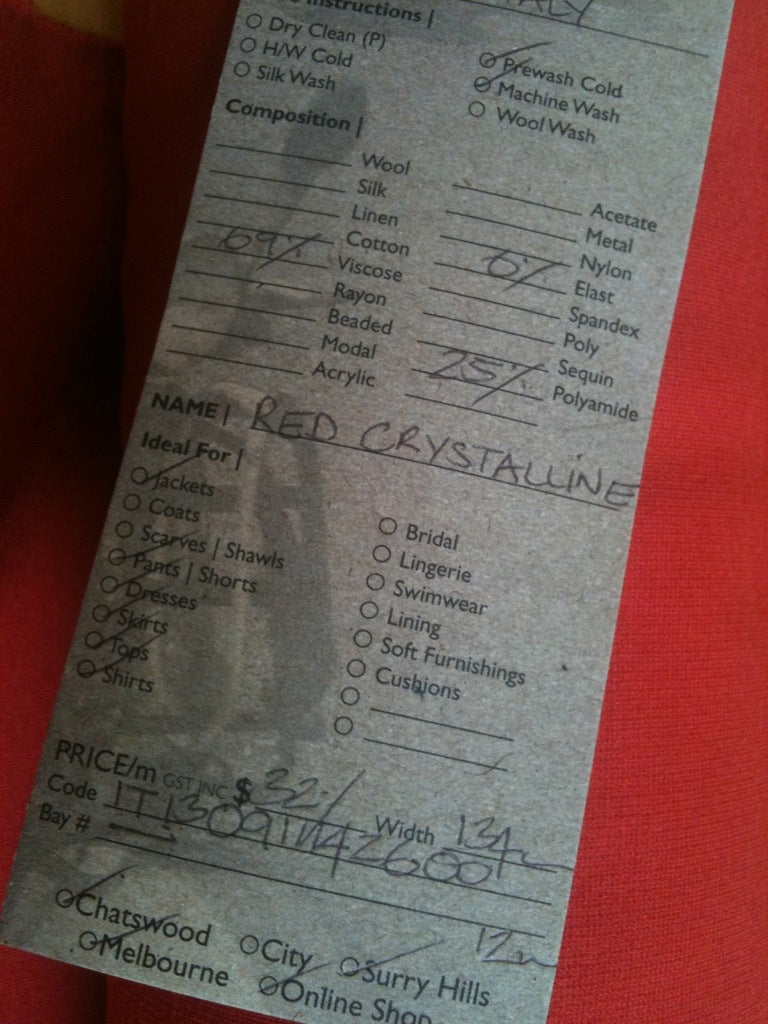 Instructions |
Dry Clean (P)
H/W Cold
Silk Wash
Prewash Cold
Machine Wash
Wool Wash
Composition |
Wool
Silk
Linen
Cotton
69% Viscose
Rayon
Beaded
Modal
Acrylic
Acetate
Metal
Nylon
6% Elast
Spandex
Poly
Sequin
25% Polyamide
NAME | RED CRYSTALLINE
Ideal For |
Jackets
Coats
Scarves | Shawls
Pants | Shorts
Dresses
Skirts
Tops
Shirts
Bridal
Lingerie
Swimwear
Lining
Soft Furnishings
Cushions
PRICE/m GST INC $ 32.- Width 134
Code
Bay #
12m
Chatswood City Surry Hills
Melbourne Online Shop